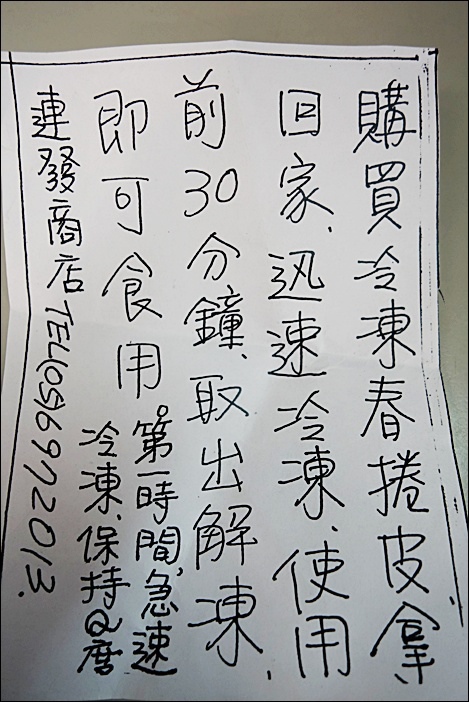 購買冷凍春捲皮.拿
回家.迅速冷凍.使用
前30分鐘.取出解凍.
即可食用。第一時間,急速
冷凍.保持Q度
連發商店TEL(05)6972013.